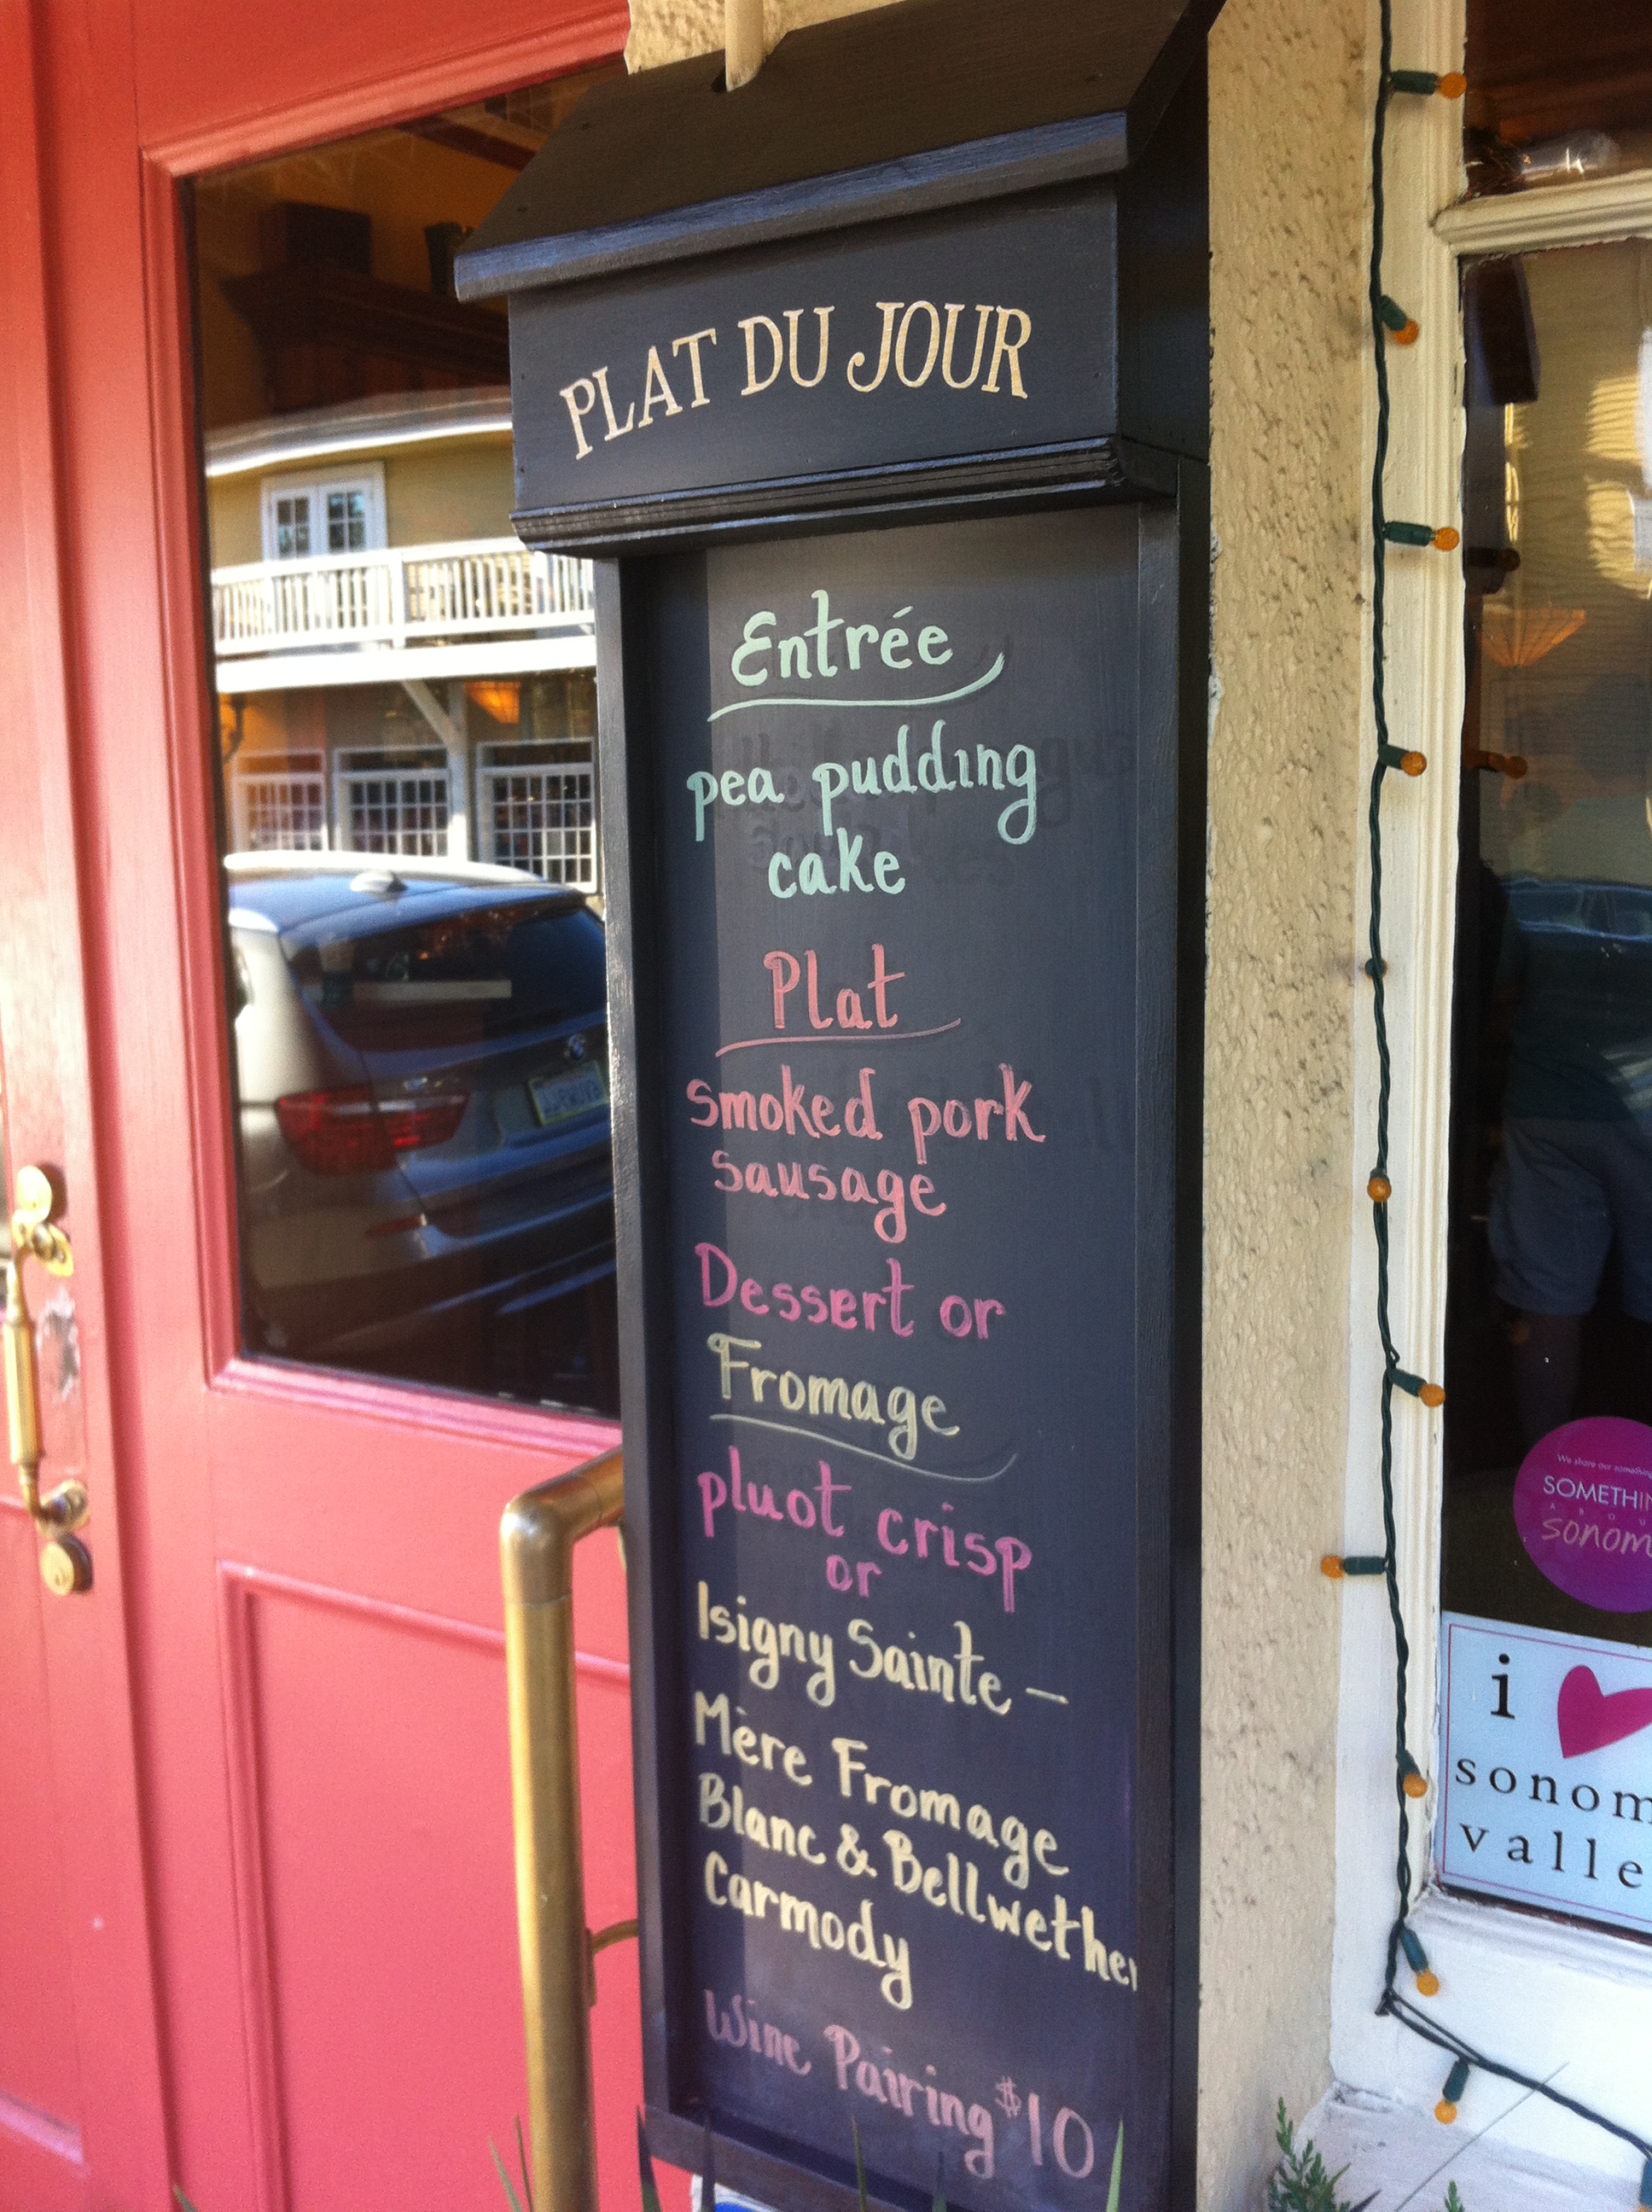 PLAT DU JOUR
Entrée
pea pudding
cake
Plat
smoked pork
sausage
Dessert or
Fromage
pluot crisp
or
Isigny Sainte -
Mère Fromage
Blanc & Bellwether
Carmody
Wine Pairing $10
We share our
SOMETHIN
ABOU
sonom
i
sonom
valle